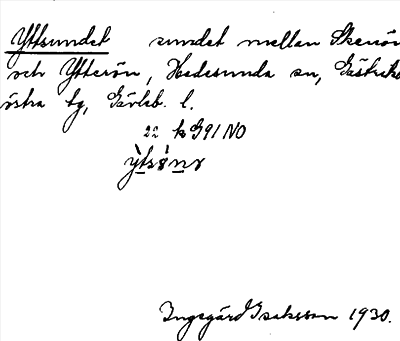 Yttsundet sundet mellan Skenön
och Ytterön, Hedesunda sn, Gästrikl
östra tg, Gävleb. l.
22 k G 91 NO
Ingegärd Isaksson 1930.